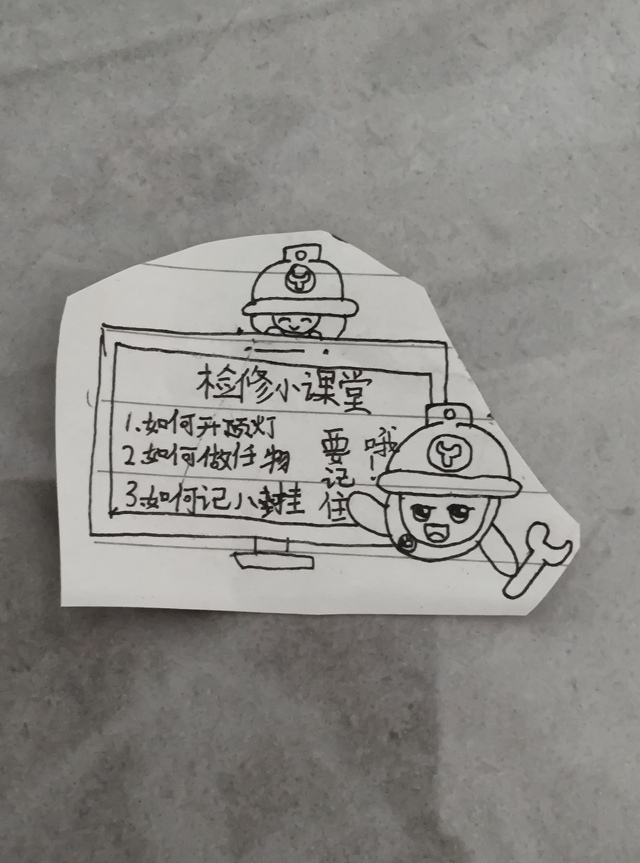 检修小课堂
1.如何开灯
2.如何做任物
3.如何记八
要记住
哦!